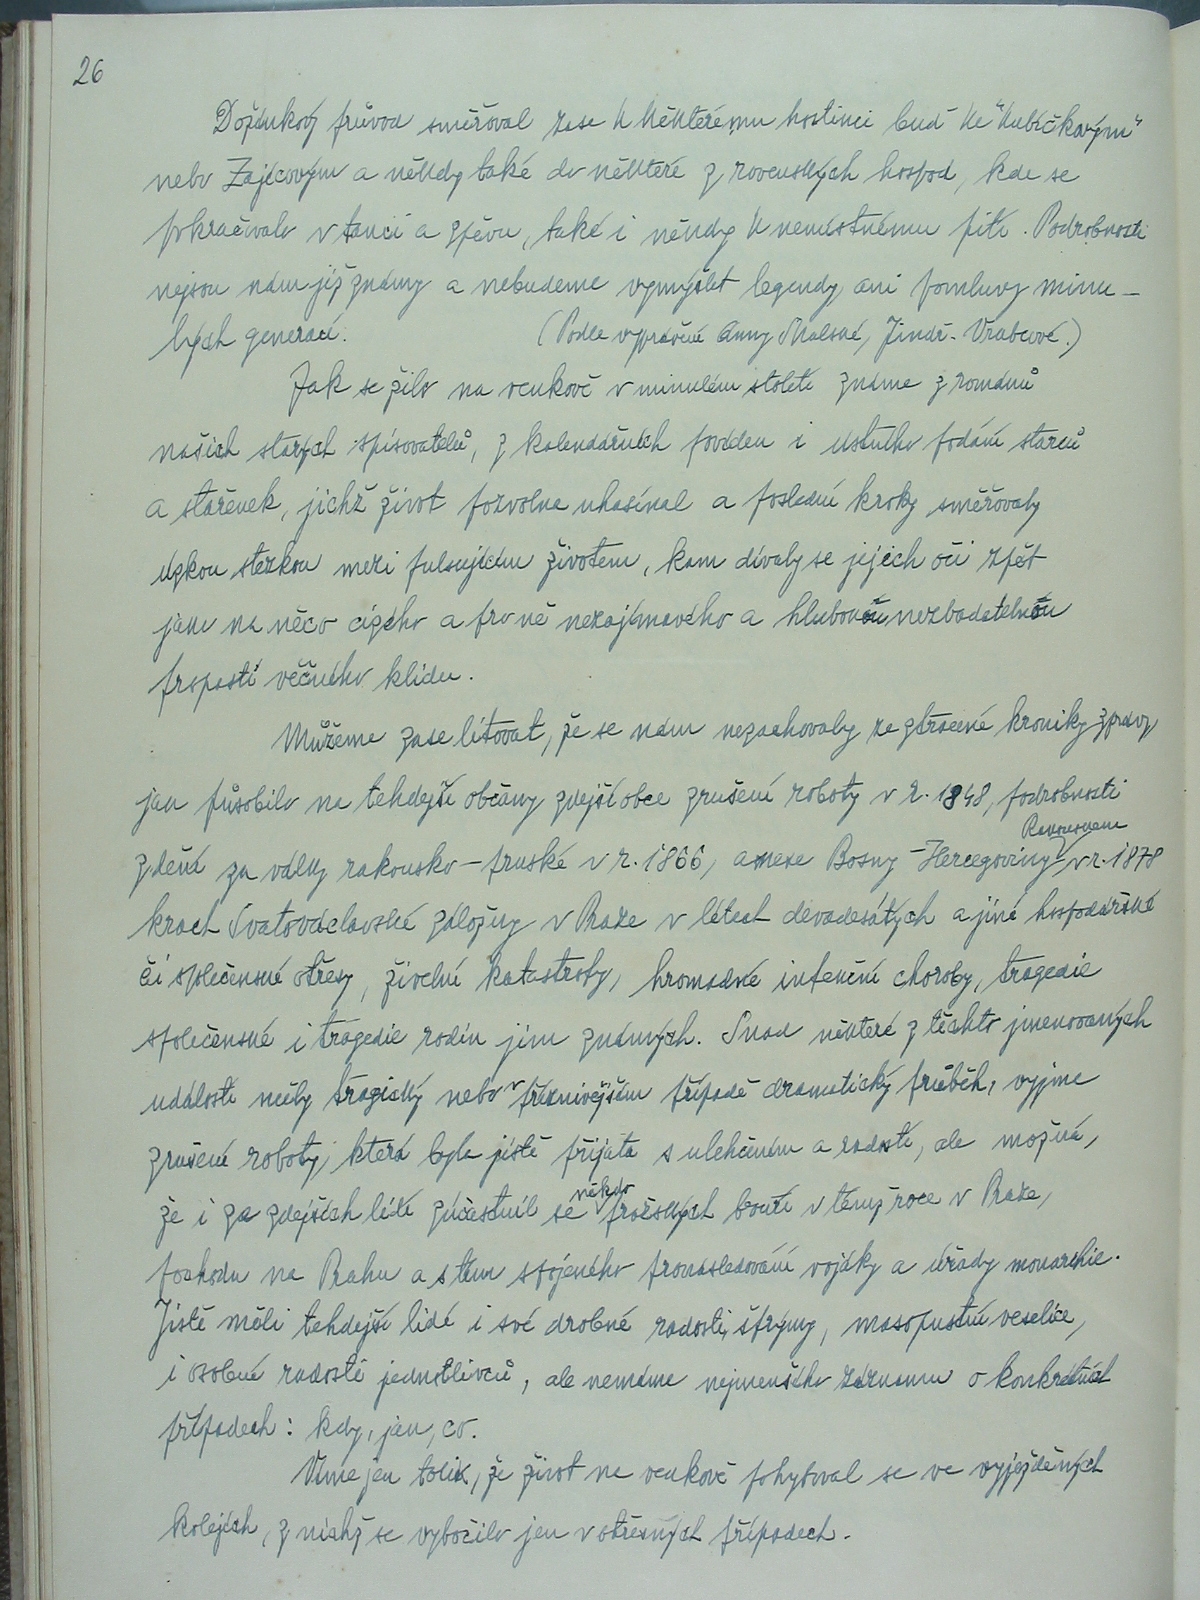 26
Dožínkový průvod směřoval zase k některému hostinci buď ke "Kubíčkovým"
nebo Zajícovým a někdy také do některé z rovenských hospod, kde se
pokračovalo v tanci a zpěvu, také i někdy k nemístnému pití. Podrobnosti
nejsou nám již známy a nebudeme vymýšlet legendy ani pomluvy minu-
lých generací. (Podle vyprávění Anny Skalské, Jindř. Vrabcové.)
Jak se žilo na venkově v minulém století známe z románů
našich starých spisovatelů, z kalendářních povídek i ústního podání starců
a stařenek, jichž život pozvolna uhasínal a poslední kroky směřovaly
úzkou stezkou mezi pulsujícím životem, kam dívaly se jejich oči zpět
jako na něco cizého a pro ně nezajímavého a hlubokou nezbadatelnou
propastí věčného klidu.
Můžeme zase litovat, že se nám nezachovaly ze ztracené kroniky zprávy
jak působilo na tehdejší občany zdejší obce zrušení roboty v r. 1848, podrobnosti
zdění za války rakousko-pruské v r. 1866, anexe Bosny-Hercegoviny Rakouskem v r. 1878
krach Svatováclavské záložny v Praze v létech devadesátých a jiné hospodářské
či společenské otřesy, živelní katastrofy, hromadné infekční choroby, tragedie
společenské i tragedie rodin jim známých. Snad některé z těchto jmenovaných
událostí měly tragický nebo v příznivějším případě dramatický průběh, vyjma
zrušení roboty, která byla jistě přijata s ulehčením a radostí, ale možná,
že i za zdejších lidí zúčastnil se někdo pražských bouří v témž roce v Praze,
pochodu na Prahu a s tím spojeného pronásledování vojáky a úřady monarchie.
Jistě měli tehdejší lidé i své drobné radosti, šprýmy, masopustní veselice,
i osobní radosti jednotlivců, ale nemáme nejmenšího záznamu o konkrétních
případech: kdy, jak, co.
Víme jen tolik, že život na venkově pohyboval se ve vyježděných
kolejích, z nichž se vybočilo jen v otřesných případech.